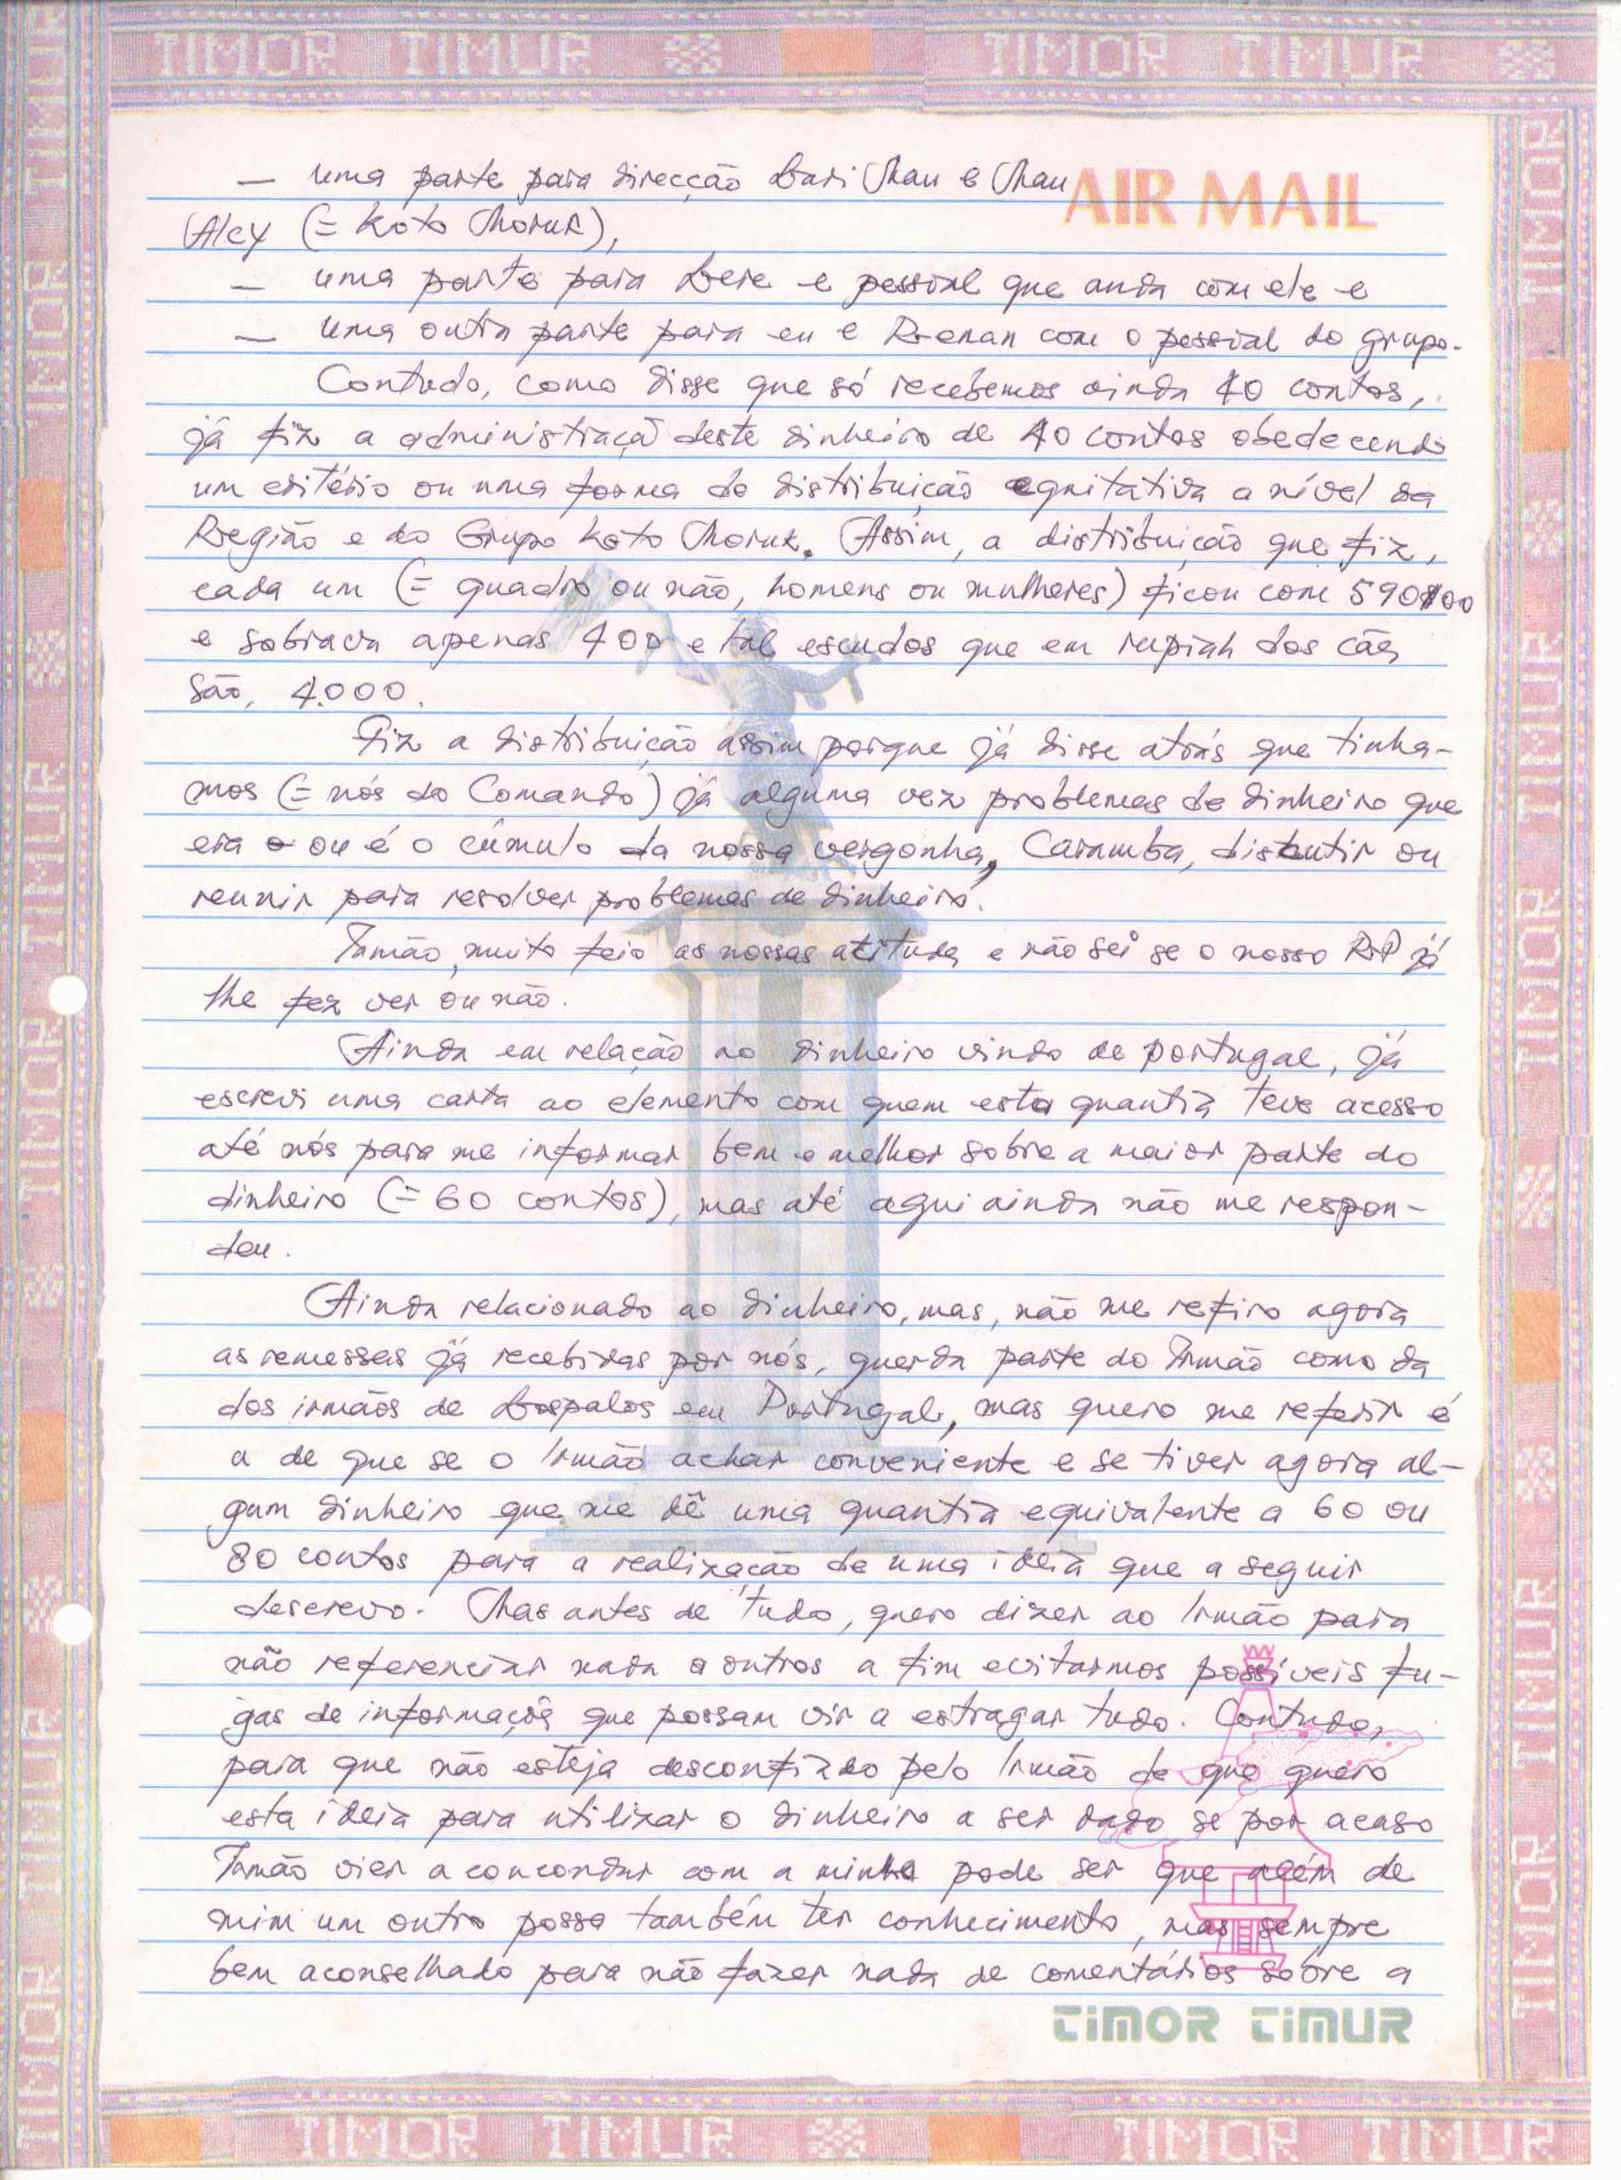 TIMOR TIMUR TIMOR TIMUR
AIR MAIL
— uma parte para direcção Lari Mau e Mau
Alex (= Koto Moruk),
— uma parte para Lere e pessoal que anda com ele e
— uma outra parte para eu e Renan com o pessoal do grupo.
Contudo, como disse que só recebemos ainda 40 contos,
já fiz a administraçã deste dinheiro de 40 contos obedecendo
um critério ou uma forma de distribuição equitativa a nível da
Região e do Grupo Koto Moruk. Assim, a distribuição que fiz,
cada um (= quadro ou não, homens ou mulheres) ficou com 590$00
e sobrava apenas 400 e tal escudos que em rupiah dos cães
são, 4.000.
Fiz a distribuição assim porque já disse atrás que tinha-
mos (= nós do Comando) já alguma vez problemas de dinheiro que
era ou é o cúmulo da nossa vergonha, Caramba, discutir ou
reunir para resolver problemas de dinheiro.
Irmão, muito feio as nossas atitudes e não sei se o nosso
já
lhe fez ver ou não.
Ainda em relação ao dinheiro vindo de portugal, já
escrevi uma carta ao elemento com quem esta quantia teve acesso
até nós para me informar bem e melhor sobre a maior parte do
dinheiro (= 60 contos), mas até aqui ainda não me respon-
deu.
Ainda relacionado ao dinheiro, mas, não me refiro agora
as remessas já recebidas por nós, quer da parte do Irmão como da
dos irmãos de Lospalos em Portugal, mas quero me referir é
a de que se o Irmão achar conveniente e se tiver agora al-
gum dinheiro que me dê uma quantia equivalente a 60 ou
80 contos para a realização de uma ideia que a seguir
descrevo. Mas antes de tudo, quero dizer ao Irmão para
não referenciar nada a outros a fim evitarmos possíveis fu-
gas de informaçõs que possam vir a estragar tudo. Contudo,
para que não esteja desconfiado pelo Irmão de que quero
esta ideia para utilizar o dinheiro a ser dado se por acaso
Irmão vier a concordar com a minha pode ser que além de
mim um outro possa também ter conhecimento, mas sempre
bem aconselhado para não fazer nada de comentários sobre a
TIMOR TIMUR
TIMOR TIMUR TIMOR TIMUR